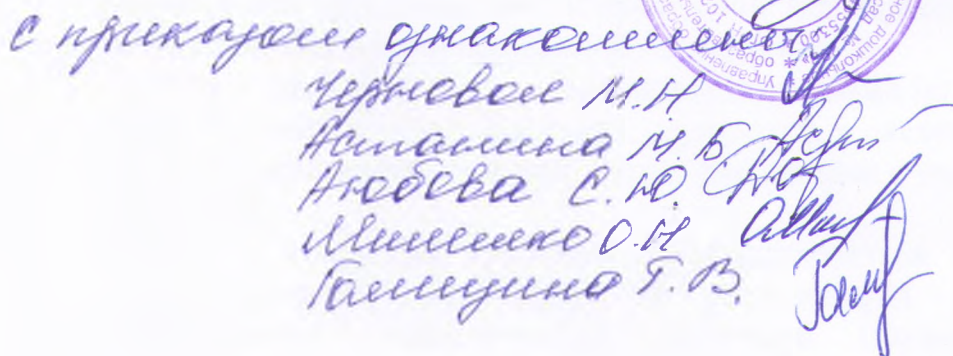 с приказом ознакомлены
Черновол М.Н
Астанина М.Б
Аюбова С.Ю.
Мишенко О.Н
Галицина Т.В.